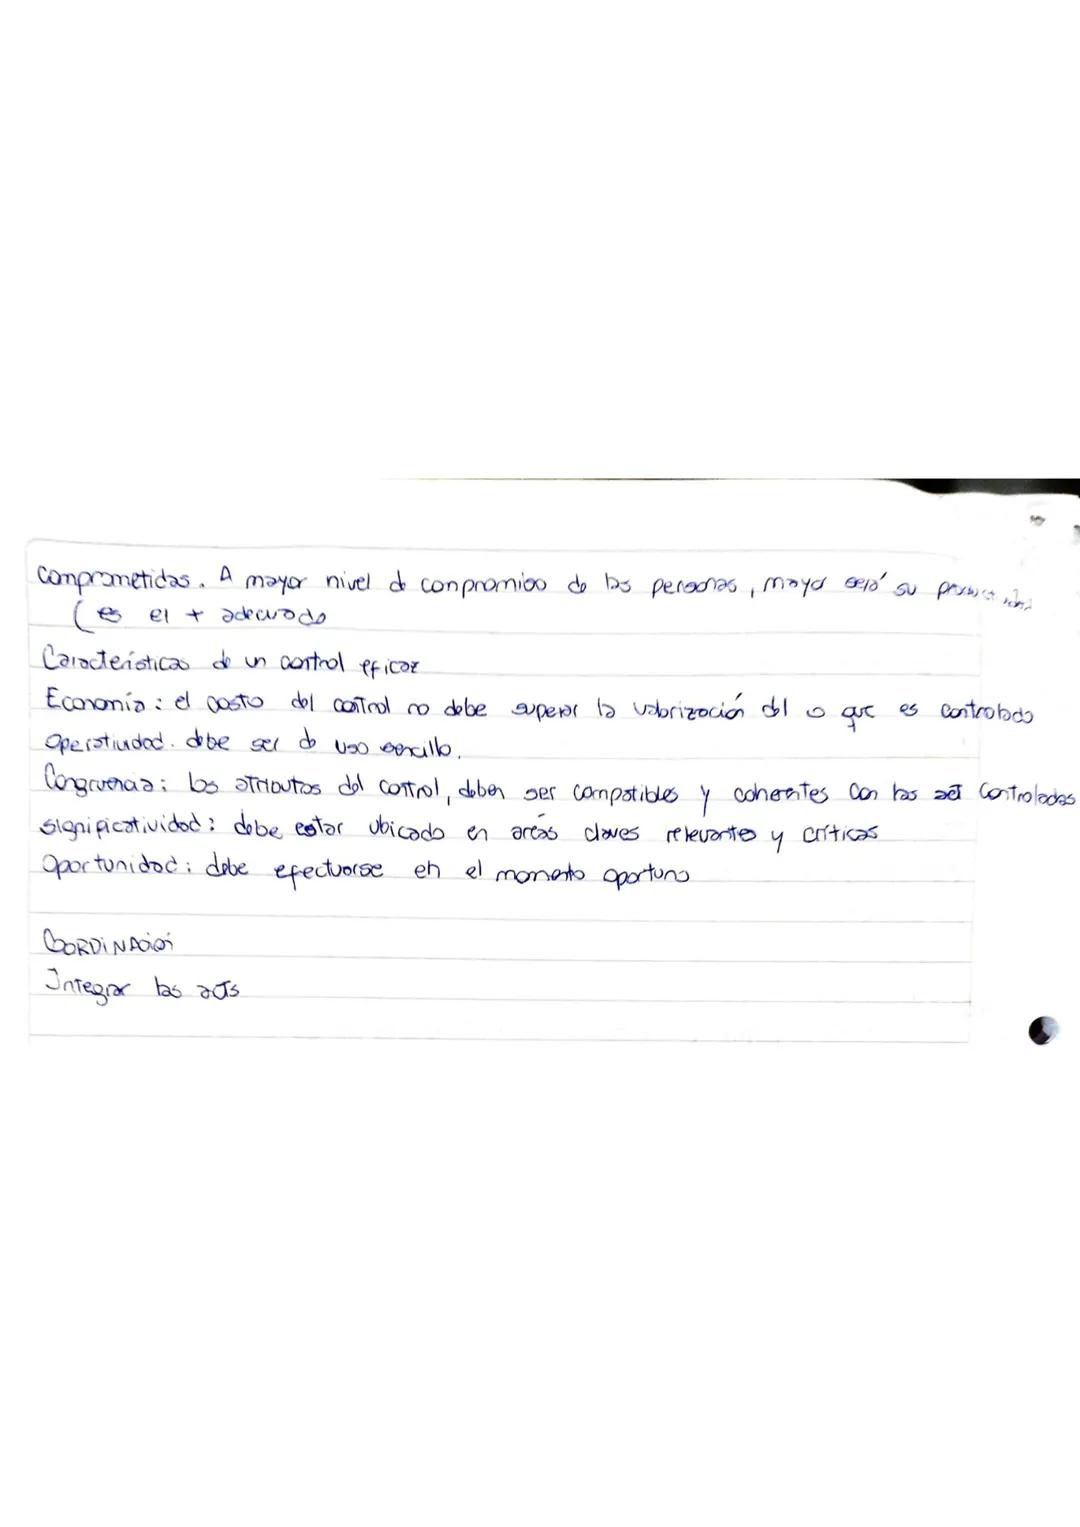 comprometidas. A mayor nivel de conpromiso de las personas, mayor será su
(es el + adecuado
Características de un control eficaz
Economía: el costo del control no debe superar la valorización del o que es controlado
Operatividad. debe ser de uso sencillo.
Congruencia: los atributos del control, deben ser compatibles y coherentes con las act controladas
significatividad: debe estar ubicado en areás claves relevantes y críticas
Oportunidad: debe efectuarse en el momento oportuno
COORDINACIÓN
Integrar las acts